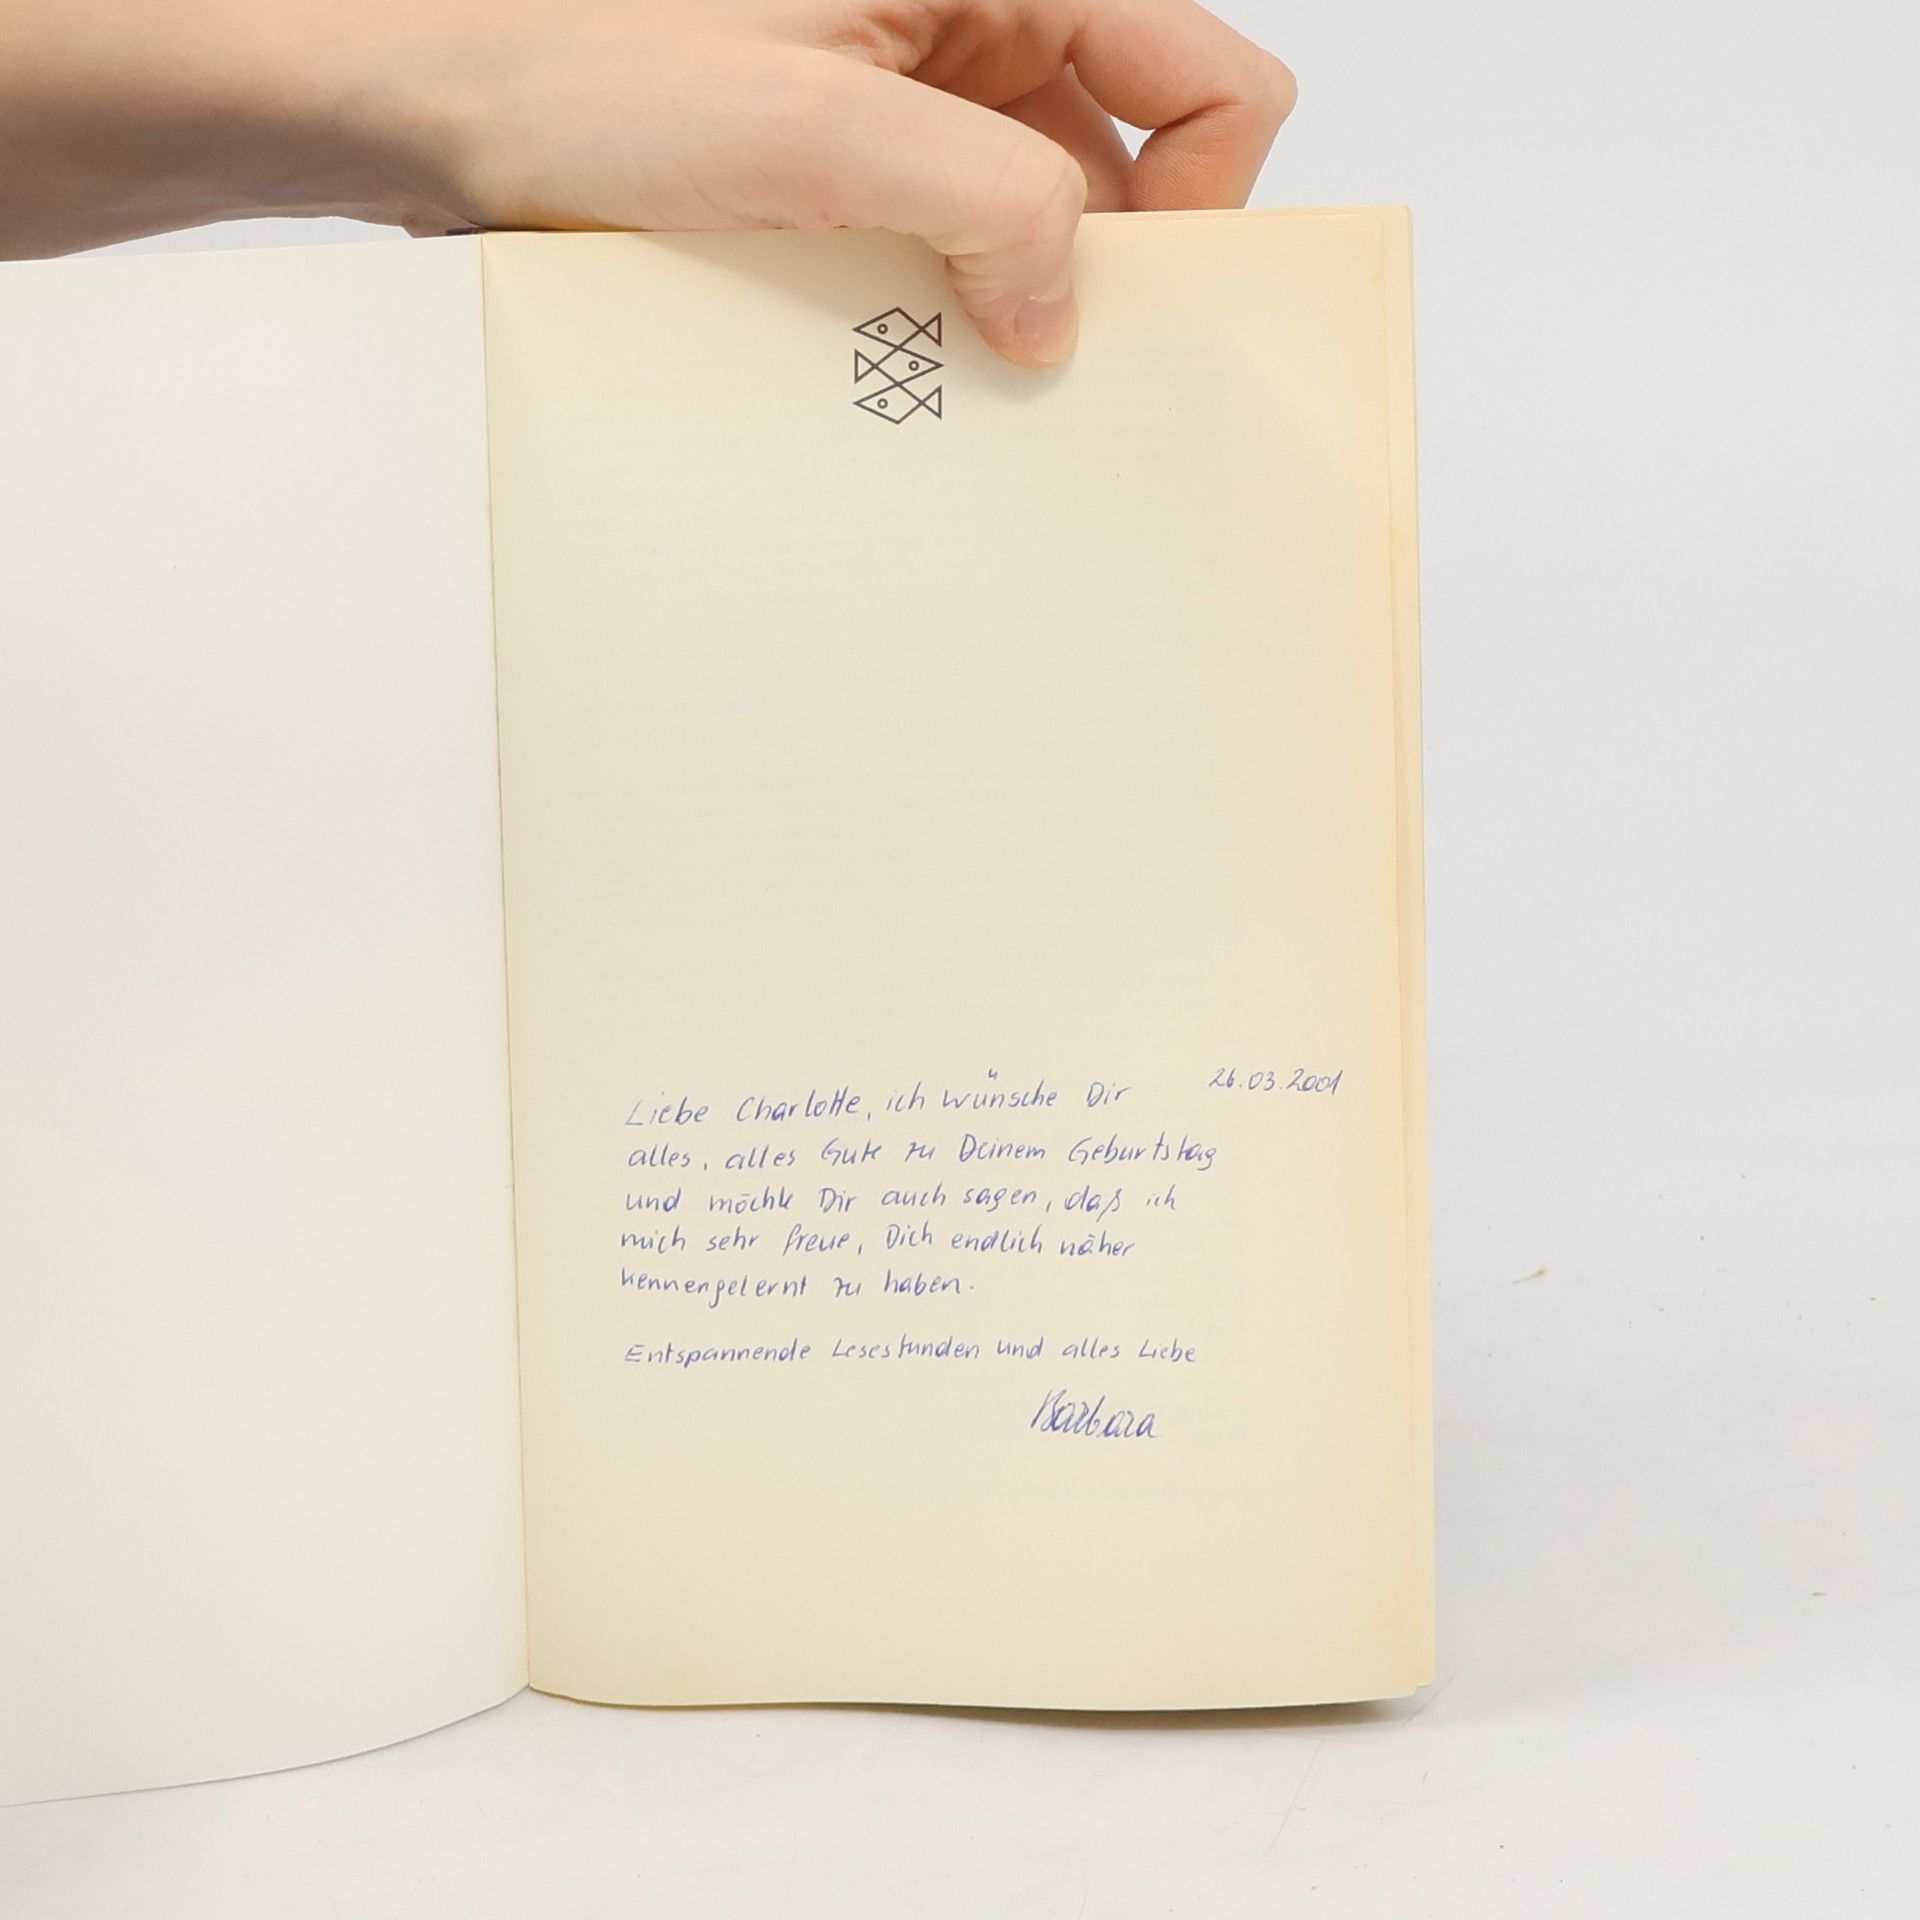 26.03.2001
Liebe Charlotte, ich wünsche Dir
alles, alles Gute zu Deinem Geburtstag
und möchte Dir auch sagen, daß ich
mich sehr freue, Dich endlich näher
kennengelernt zu haben.
Entspannende Lesestunden und alles Liebe
Barbara